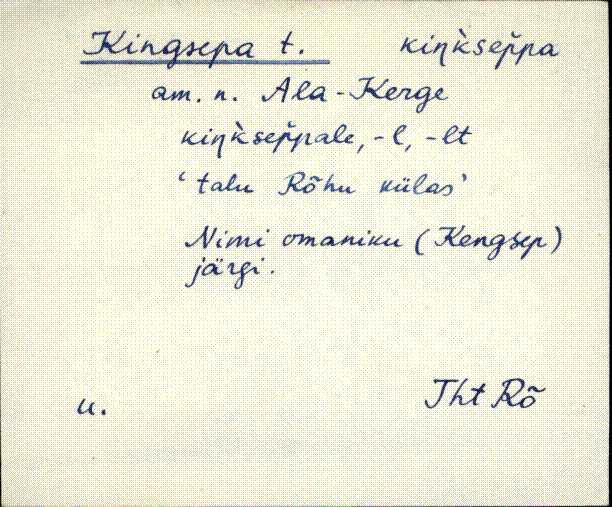 Kingsepa t. kiŋ̀ksep̌pa
am. n. Ala-Kerge
kiŋ̀ksep̌pale, -l, -lt
‘talu Rõhu külas’
Nimi omaniku (Kengsep)
järgi.
u. Tht Rõ